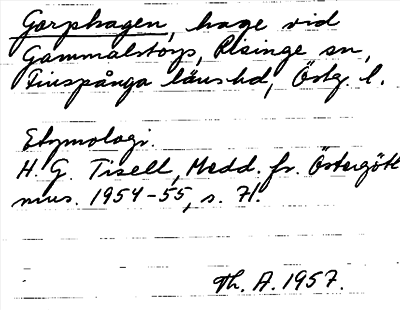 Garphagen, hage vid
Gammalstorp, Risinge sn,
Finspånga länshd, Östg. l.
Etymologi.
H. G. Tisell, Medd. fr. Östergötl
mus. 1954-55, s. 71.
Th. A. 1957.